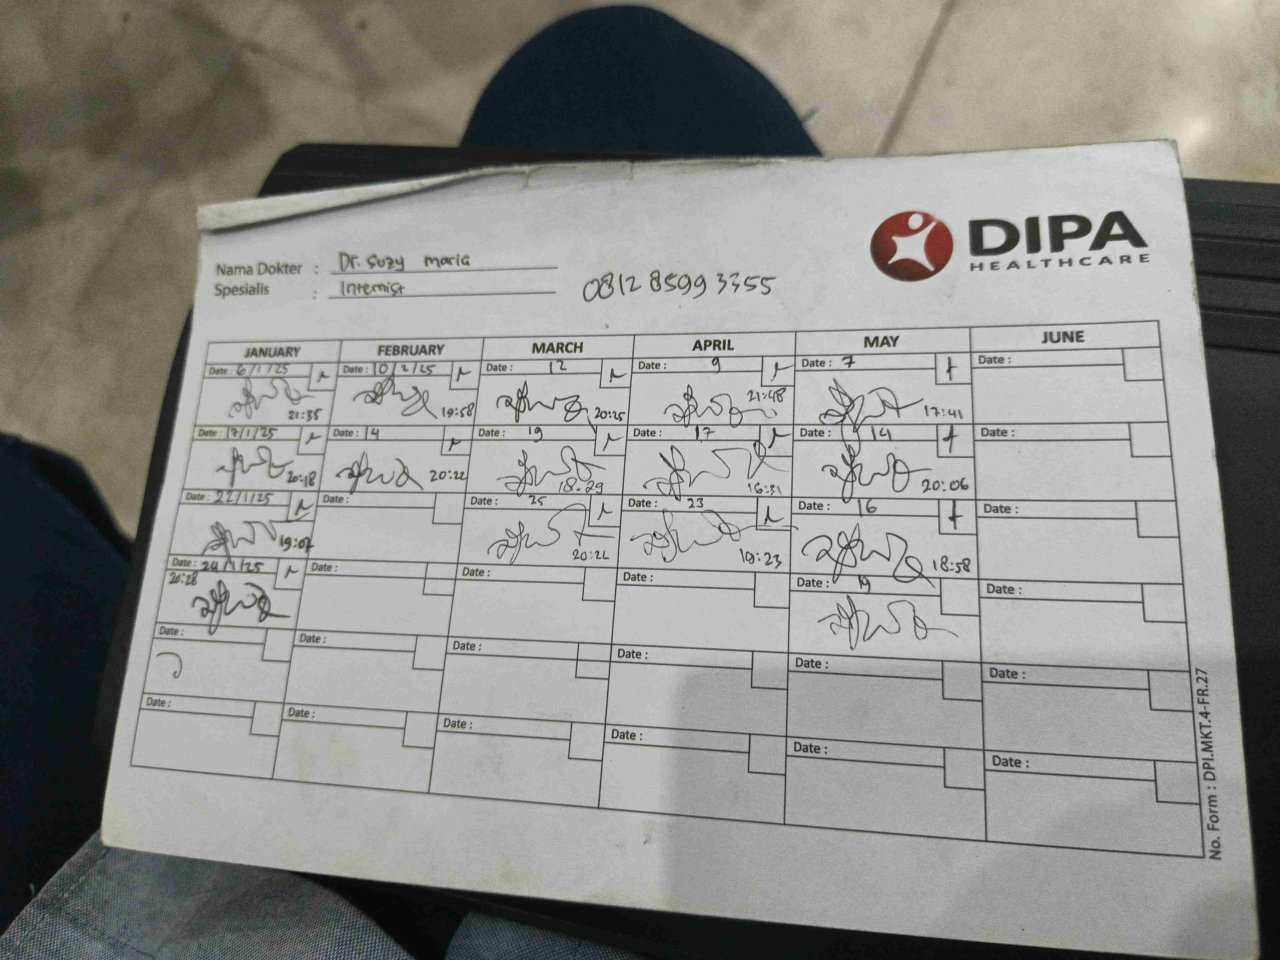 DIPA
HEALTHCARE
Nama Dokter : Dr. Suzy Maria
Spesialis : Internist
0812 8599 3355
JANUARY FEBRUARY MARCH APRIL MAY JUNE
Date : 6/1/25 Date : 10/2/25 Date : 12 Date : 9 Date : 7 Date :
21:35 19:58 20:25 21:48 17:41
Date : 17/1/25 Date : 14 Date : 19 Date : 17 Date : 14 Date :
20:18 20:22 18.29 16:31 20:06
Date : 22/1/25 Date : Date : 25 Date : 23 Date : 16 Date :
19:07 20:22 19:23 18:58
Date : 24/1/25 Date : Date : Date : Date : 19 Date :
20:28
Date : Date : Date : Date : Date : Date :
Date : Date : Date : Date : Date : Date :
No. Form : DPI.MKT.4-FR.27